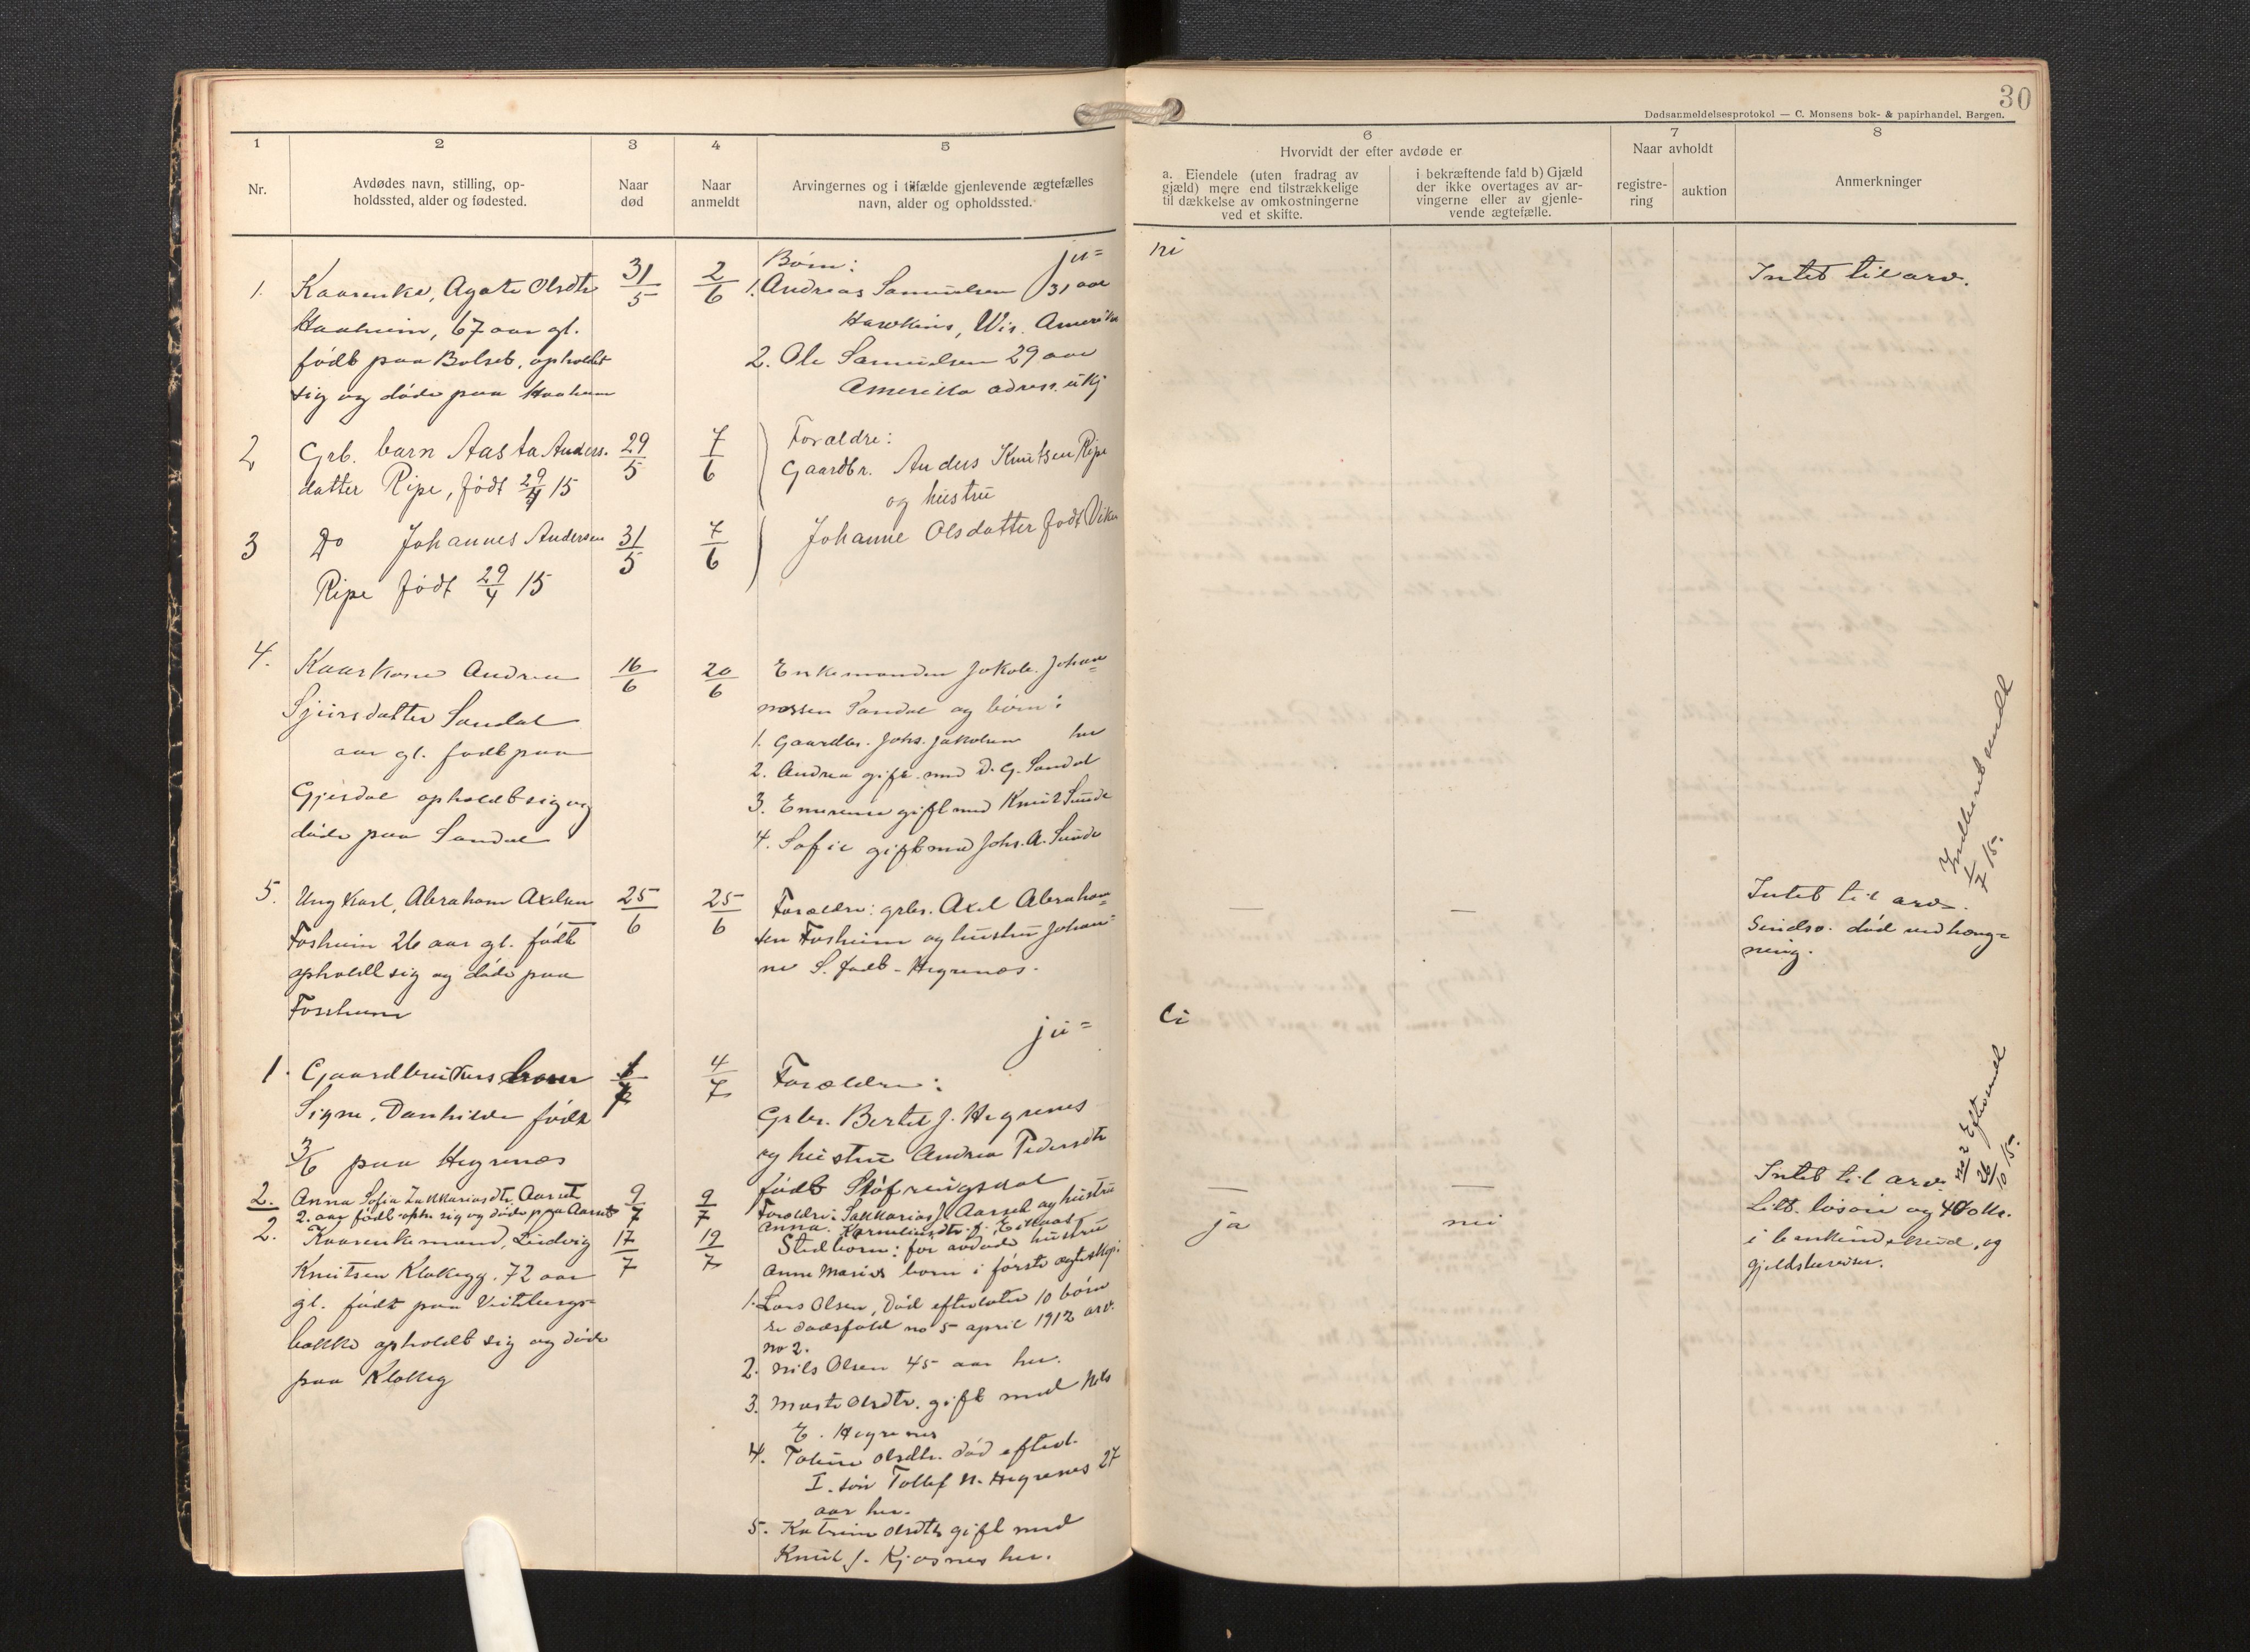 30
Dødsanmeldelsesprotokol — C. Monsens bok- & papirhandel. Bergen.
1
Nr.
2
Avdødes navn, stilling, op-
holdssted, alder og fødested.
3
Naar
død
4
Naar
anmeldt
5
Arvingernes og i tilfælde gjenlevende ægtefælles
navn, alder og opholdssted.
6
Hvorvidt der efter avdøde er
a. Eiendele (uten fradrag av
gjæld) mere end tilstrækkelige
til dækkelse av omkostningerne
ved et skifte.
i bekræftende fald b) Gjæld
der ikke overtages av ar-
vingerne eller av gjenle-
vende ægtefælle.
7
Naar avholdt
registre-
ring
auktion
8
Anmerkninger
ju= ni
1. Kaarenke, Agate Olsdtr
Haaheim, 67 aar gl.
født paa Bolset, opholdt
sig og døde paa Haaheim
31/5
2/6
Børn:
1. Andreas Samuelsen 31 aar
Hawkins, Wis. Amerika
2. Ole Samuelsen 29 aar
Amerika adress. ukj
Intet til arv.
2 Grb. barn Aasta Anders.
datter Ripe, født 29/4 15
29/5
7/6
Forældre:
Gaardbr. Anders Knutsen Ripe
og hustru
Johanne Olsdatter født Viken
3 Do Johannes Andersen
Ripe født 29/4 15
31/5
7/6
4. Kaarkone Andrea
Sjursdatter Sandal
aar gl. født paa
Gjesdal opholdt sig og
døde paa Sandal
16/6
20/6
Enkemanden Jakob Johan=
nessen Sandal og børn:
1. Gaardbr. Johs. Jakobsen her
2. Andrea gift med D. G. Sandal
3. gift med Knut Sunde
4. Sofie gift med Johs. A. Sunde
Indberet sendt
1/7 15.
5. Ung Karl, Abraham Axelsen
Fosheim 26 aar gl. født
opholdt sig og døde paa
Fossheim
25/6
25/6
Forældre: grbr. Axel Abraham=
sen Fosheim og hustru Johan=
ne S. født Hegrenæs.
— —
Intet til arv.
Sindss. død ved hæng=
ning.
ju= li
1. Gaardbrukers barn
Signe, Danhilde født
3/6 paa Hegrenæs
4/7
Forældre:
Grbr. Bertel J. Hegrenes
og hustru Andrea Pedersdtr
født Støfringsdal
2. Anna Sofia Zakkariasdtr. Aarset
2. aar født oph. sig og døde paa Aarset
9/7
9/7
Forældre: Sakkarias J. Aarset og hustru
Anna
— —
Intet til arv.
no 2 Eftersendt
26/10 15.
2. Kaarenkemand, Ludvig
Knutsen Klokegg. 72 aar
gl. født paa Viteburgs=
bakke opholdt sig og døde
paa Klokeg
17/7
19/7
Stedbørn: for avdøde hustru
Anne Maries børn i første ægteskap:
1. Lars Olsen, død efterlater 10 børn
se dødsfald no 5 april 1912 arv.
no 2.
2. Nils Olsen 45 aar her.
3. Marte Olsdtr. gift med Nils
E. Hegrenes
4. Oline Olsdtr. død efterl.
I. søn Tollef N. Hegrenes 27
aar her.
5. Katrine Olsdtr gift med
Knut J. Kjøsnes her.
ja
nei
Litt løsøre og 400 kr.
i bankindskud, og
gjeldsbeviser.